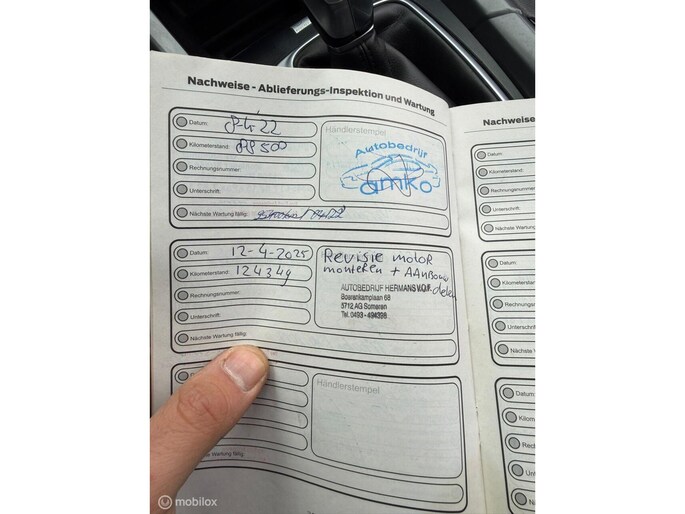 Nachweise - Ablieferungs-Inspektion und Wartung
Datum:
Kilometerstand:
Rechnungsnummer:
Unterschrift:
Nächste Wartung fällig:
Händlerstempel
Autobedrijf
amko
Datum: 12-4-2025
Kilometerstand: 124349
Rechnungsnummer:
Unterschrift:
Nächste Wartung fällig:
REVISIE MOTOR
monteren + AANBOUW
delen
AUTOBEDRIJF HERMANS V.O.F.
Boerenkamplaan 68
5712 AG Someren
Tel. 0493 - 494398
Händlerstempel
Wartung fällig:
Nachweise
Datum:
Kilometerstand:
Rechnungsnummer:
Unterschrift:
Nächste Wart
Datum:
Kilometerstand:
Rechnungsnum
Unterschrift
Nächste Wa
Datum:
Kilom
Rech
Unt
N
mobilox